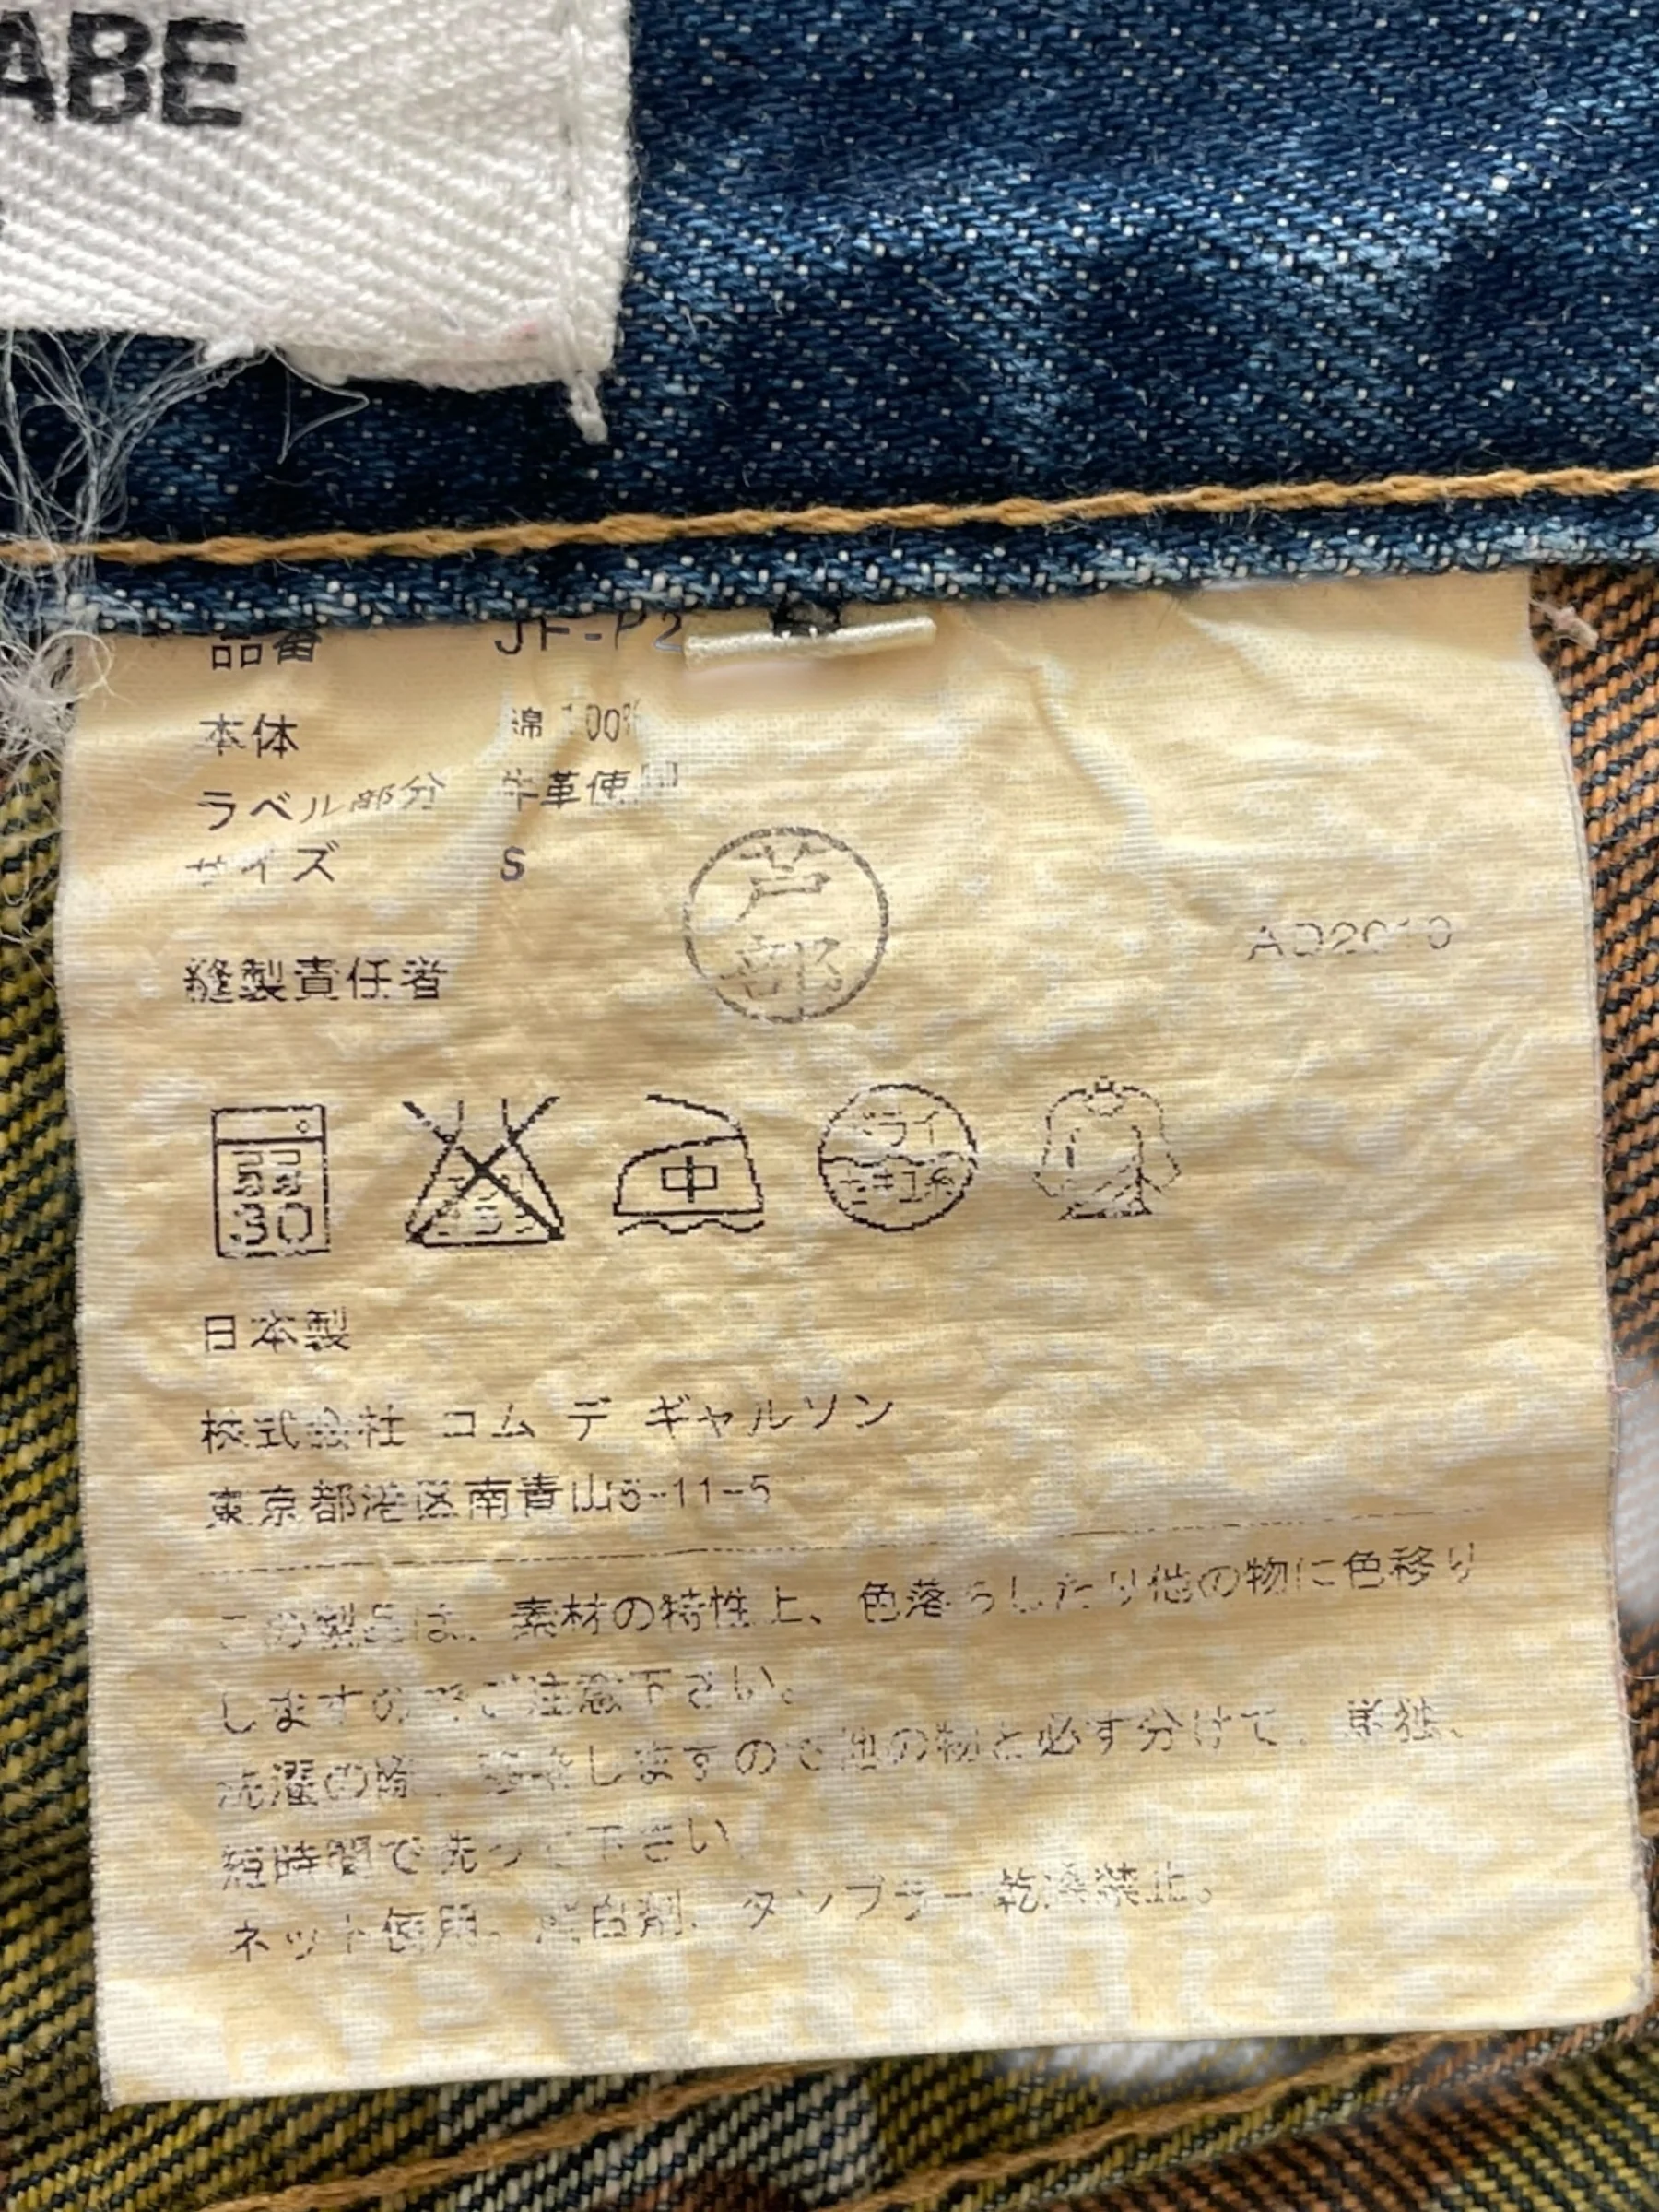 ABE
品番 JF-P2
本体 綿 100%
ラベル部分 牛革使用
サイズ S
芦部
AD2010
縫製責任者
弱 30
中
ドライ
セキユ系
日本製
株式会社 コム デ ギャルソン
東京都港区南青山5-11-5
この製品は、素材の特性上、色落ちしたり他の物に色移り
しますのでご注意下さい。
洗濯の際、色落ちしますので他の物と必ず分けて、単独、
短時間で洗って下さい
ネット使用。漂白剤、タンブラー乾燥禁止。